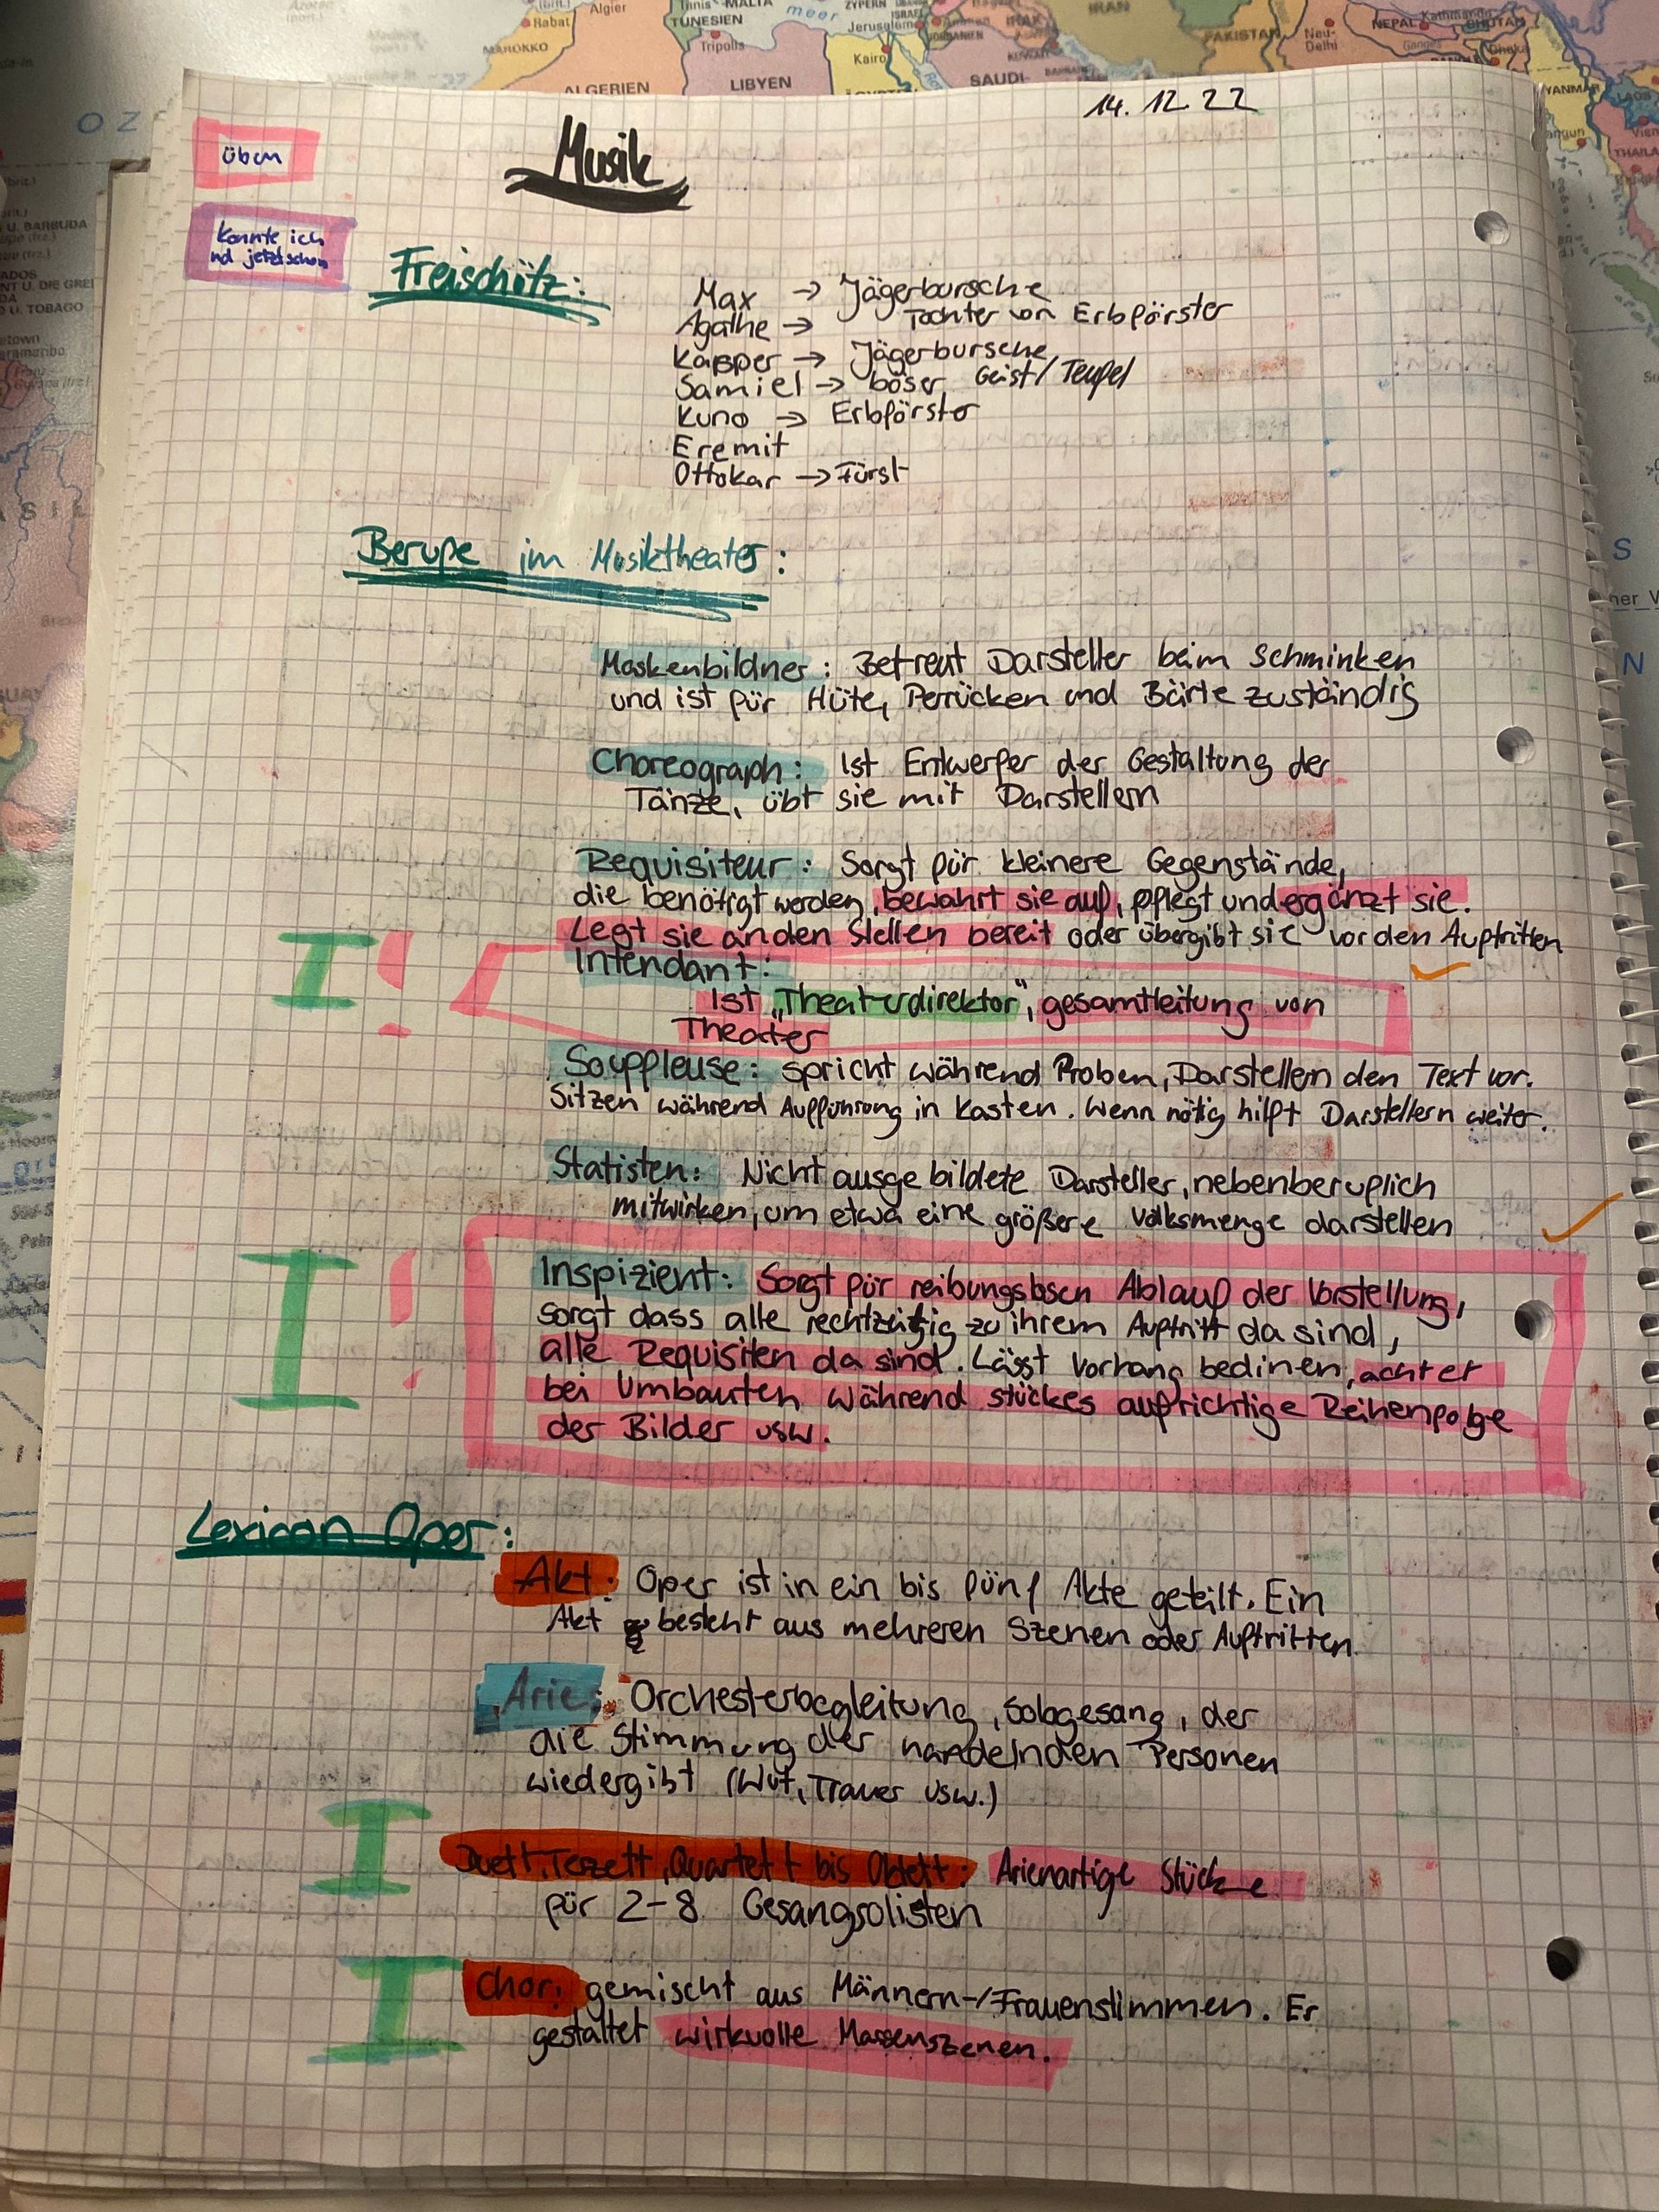 14.12.22
üben
Musik
Konnte ich
nd jetzt schon
Freischütz:
Max → Jägerbursche
Agathe → Tochter von Erbförster
Kasper → Jägerbursche
Samiel → böser Geist/Teufel
Kuno → Erbförster
Eremit
Ottokar → Fürst
Berufe im Musiktheater:
Maskenbildner: Betreut Darsteller beim Schminken
und ist für Hüte, Perrücken und Bärte zuständig
Choreograph: Ist Entwerfer der Gestaltung der
Tänze, übt sie mit Darstellern
Requisiteur: Sorgt für kleinere Gegenstände,
die benötigt werden, bewahrt sie auf, pflegt und ergänzt sie.
Legt sie an den Stellen bereit oder übergibt sie vor den Auftritten
I!
Intendant:
Ist „Theaterdirektor“, gesamtleitung von
Theater
Souffleuse: spricht während Proben, Darstellern den Text vor.
Sitzen während Aufführung in Kasten. Wenn nötig hilft Darstellern weiter.
Statisten: Nicht ausgebildete Darsteller, nebenberuflich
mitwirken, um etwa eine größere Volksmenge darstellen
I!
Inspizient: Sorgt für reibungslosen Ablauf der Vorstellung,
sorgt dass alle rechtzeitig zu ihrem Auftritt da sind,
alle Requisiten da sind. Lässt Vorhang bedinen, achtet
bei Umbauten während stückes auf richtige Reihenfolge
der Bilder usw.
Lexicon Oper:
Akt: Oper ist in ein bis fünf Akte geteilt. Ein
Akt besteht aus mehreren Szenen oder Auftritten
Arie: Orchesterbegleitung, Sologesang, der
die Stimmung der handelnden Personen
wiedergibt (Wut, Trauer usw.)
I
Duett, Terzett, Quartett bis Oktett: Arienartige Stücke
für 2-8 Gesangsolisten
I
Chor: gemischt aus Männern-/Frauenstimmen. Er
gestaltet wirkvolle Massenszenen.
Rabat
MAROKKO
Algier
ALGERIEN
TUNESIEN
Tripolis
LIBYEN
MALTA
meer
ZYPERN
Jerusalem
Kairo
SAUDI-
IRAN
PAKISTAN
Neu-
Delhi
NEPAL
Kathmandu
BHUTAN
Dhaka
U. BARBUDA
U. TOBAGO